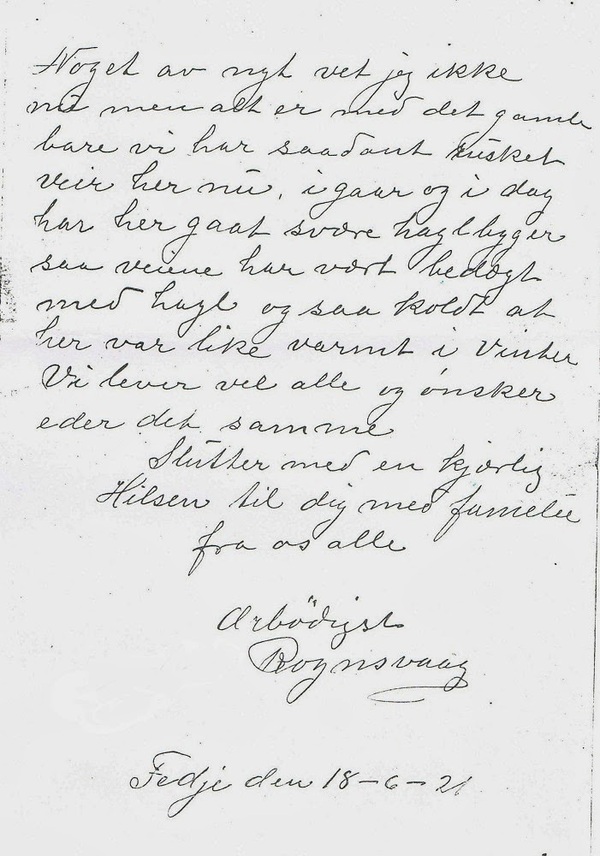 Noget av nyt vet jeg ikke
nu men alt er med det gamle
bare vi har saadant rusket
veir her nu, i gaar og i dag
har her gaat svære haglbyger
saa veiene har vært bedægt
med hagl og saa koldt at
her var like varmt i Vinter
Vi lever vel alle og ønsker
eder det samme
Slutter med en kjærlig
Hilsen til dig med familie
fra os alle
Ærbödigst
Rognsvaag
Fedje den 18-6-21